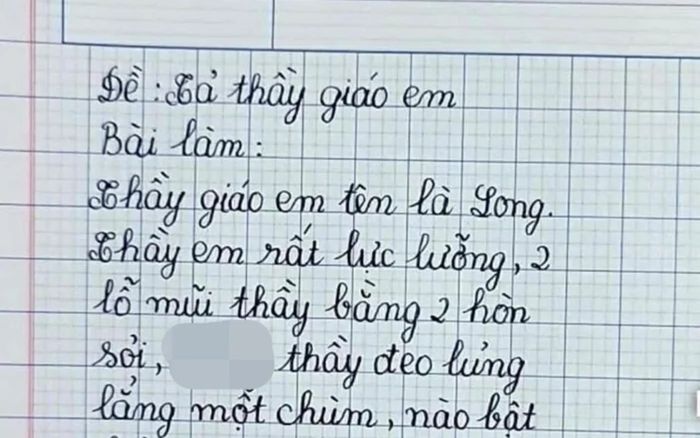 Đề: Tả thầy giáo em
Bài làm:
Thầy giáo em tên là Long.
Thầy em rất lực lưỡng, 2
lỗ mũi thầy bằng 2 hòn
sỏi, thầy đeo lủng
lẳng một chùm, nào bật